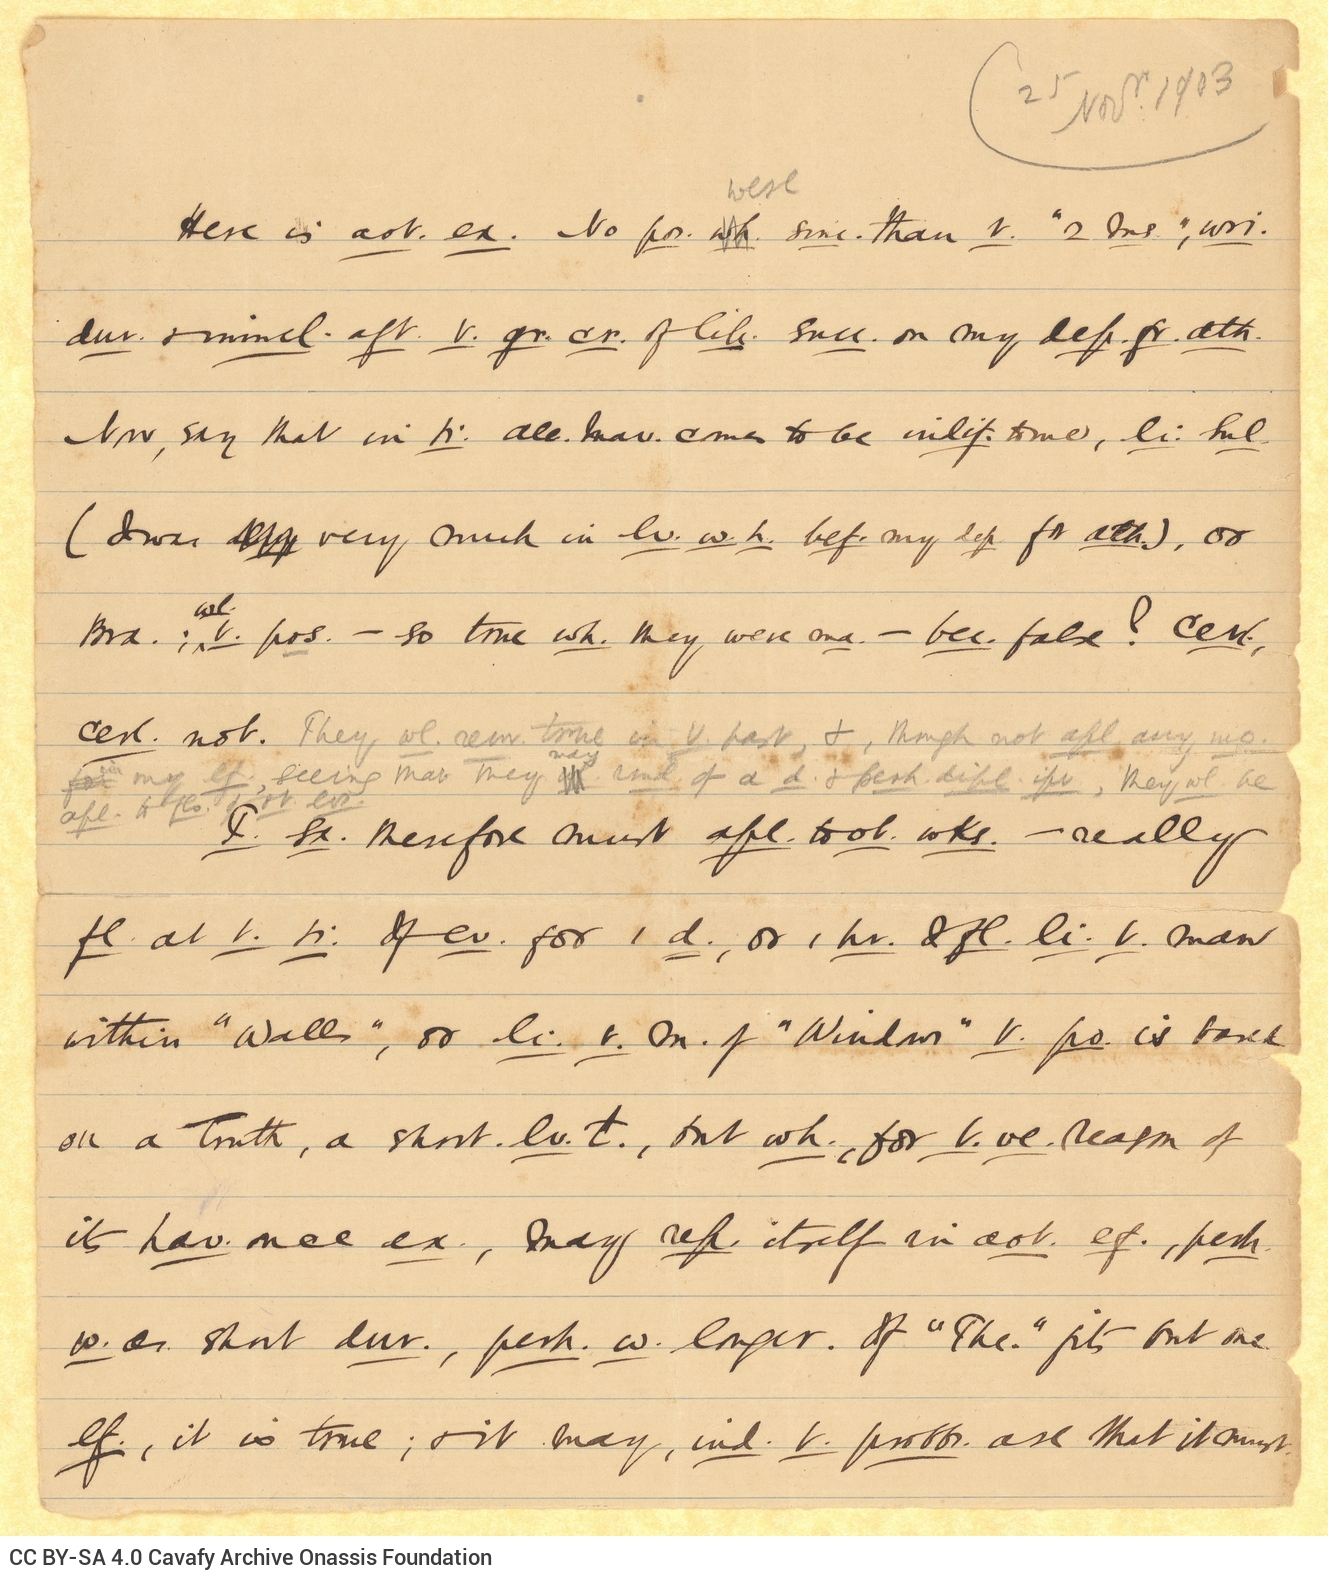 25 Novr. 1903
were
Here is aot. ex. No por. wh. sinc. than t. "2 Ms", wri.
dur. & immel. aft. t. gr. cr. of lib. succ. on my dep. fr. ath.
Now, say that in ti. Ale. Mav. comes to be indif. to me, li. Sul.
(I was very much in lv. w. h. bef. my dep. fr ath.), or
Bra. ; wl. t. pos. — so true wh. they were ma. — bec. false? Cert.,
cert. not. They wl. rem. true in t. past, &, though not apl any mo.
in my lf., seeing that they may rmd of a d. & perh. difl ipr, they wl. be
apl. to fls. lvs.
T. Sa. therefore must apl. to ot. wks. — really
fl. at t. ti. If ev. for 1 d., or 1 hr. I fl. li. t. man
within "Walls", or li. t. m. of "Windows" t. po. is based
on a truth, a short. lv. t., but wh., for t. ve. reason of
its hav. once ex., may rep. itself in aot. lf., perh.
w. as short dur., perh. w. longer. If "The." fits but one
lf., it is true; & it may, ind. t. probb. are that it must.
CC BY-SA 4.0 Cavafy Archive Onassis Foundation